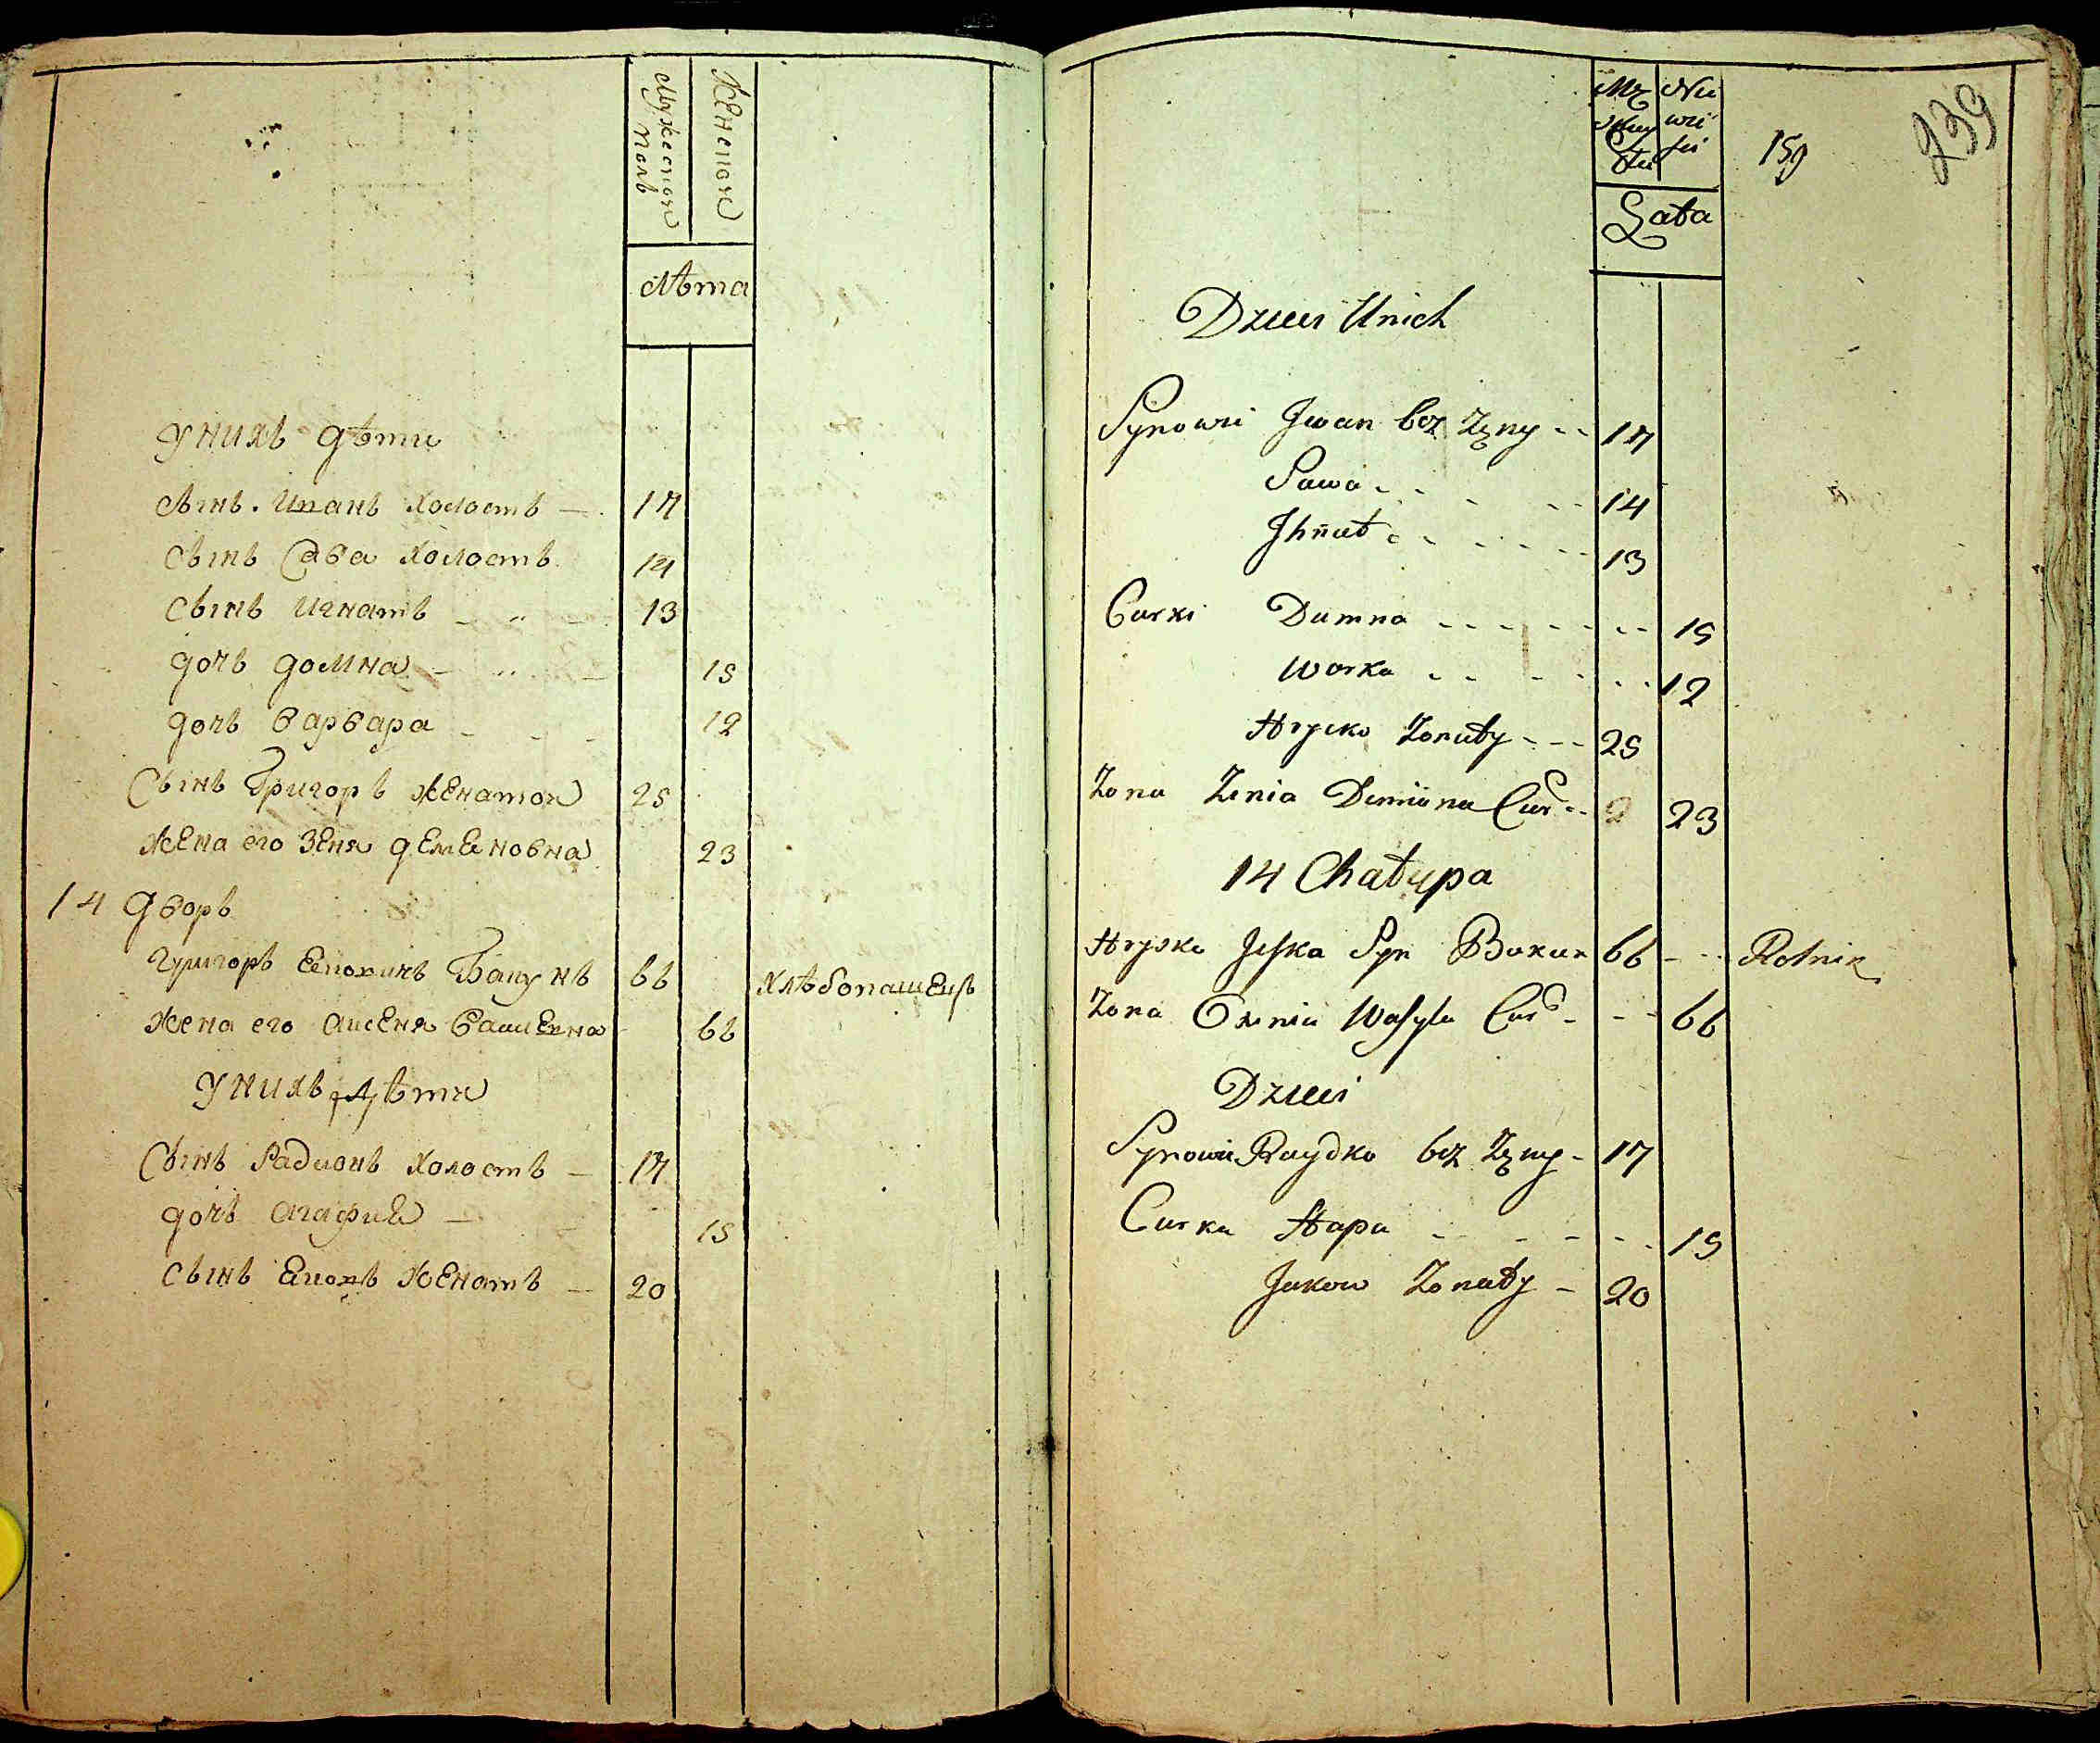 Мужеской полъ
Женской
Лѣта
У нихъ дѣти
Сынъ Иванъ холостъ 17
Сынъ Сава холостъ 14
Сынъ Игнатъ 13
дочь домна 15
дочь варвара 12
Сынъ Григоръ женатой 25
жена его Зеня деменовна 23
14 дворъ
Григоръ Бакунъ 66 хлѣбопашецъ
жена его 66
У нихъ дѣти
Сынъ Радионъ холостъ 17
дочь агафия 15
Сынъ женатъ 20
159
239
Łata
Dzieci Unich
Synowi Jwan bez Zęny 17
Sawa 14
Jhnat 13
Curki Dumna 15
Warka 12
Hrycko Zonaty 25
Zona Zenia Demiana Cur 23
14 Chałupa
Hrysko Jeſka Syn Bakun 66 Rolnik
Zona Oxenia Waſyla Cur 66
Dzieci
Synowi Raydko bez Zęny 17
Curka Hapa 15
Jakow Zonaty 20